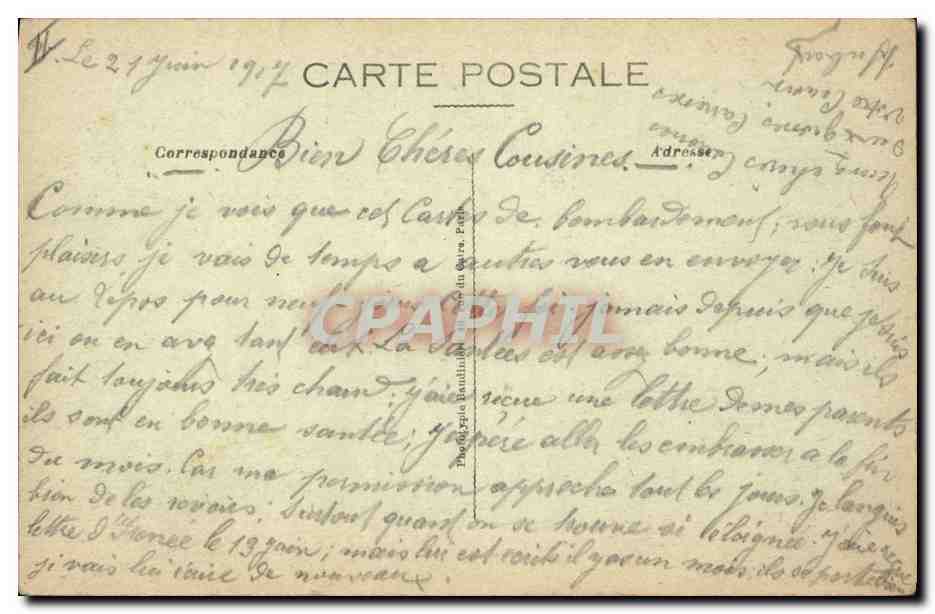 II. Le 21 Juin 1917
CARTE POSTALE
Correspondance
Adresse
Bien Chéres Cousines.
Comme je vois que cet Cartes de bombardement, vous font
plaisirs je vais de temps a autres vous en envoyez. Je suis
au repos pour neuf jamais depuis que je suis
ici on en ava tant La Santées est assez bonne, mais ils
fait toujours très chaud. j'aie reçue une lettre de mes parents
ils sont en bonne santée; j'espère aller les embrasser a la fin
du mois. Car ma permission approche tout les jours. Je languis
bien de les revoirs. Surtout quand on se trouve si éloignée. J'aie reçue
lettre d'Irenée le 19 Juin; mais lui est écrit il y as un mois, ils se porte bien
je vais lui écrire de nouveaux.
Phototypie Baudinière rue du Caire, Paris
CPAPHIL
votre Cousin